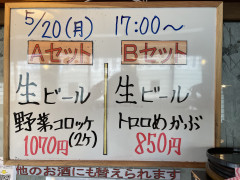 5/20(月) 17:00〜
Aセット
生ビール
野菜コロッケ
(2ケ)
1070円
Bセット
生ビール
トロロめかぶ
850円
他のお酒にも替えられます